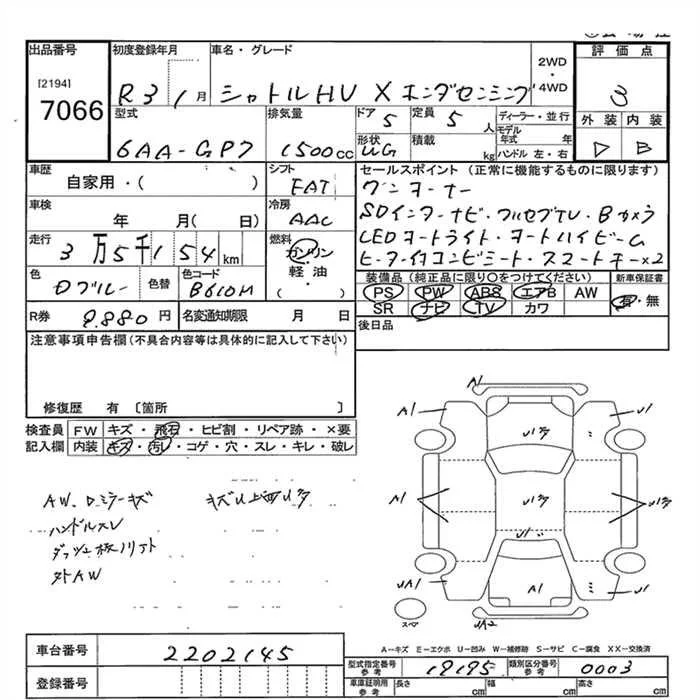 出品番号
[2194]
7066
初度登録年月
R3 1月
車名・グレード
シャトルHV X ホンダセンシング
2WD
・
4WD
評価点
3
外装 内装
D B
型式
6AA-GP7
排気量
1500cc
ドア
5
定員
5人
形状
UG
積載
kg
ディーラー・並行
モデル年式 年
ハンドル 左・右
車歴
自家用・( )
シフト
FAT
車検
年 月( 日)
冷房
AAC
走行
3万5千154km
燃料
ガソリン
軽油
( )
色
Dブルー
色替
色コード
B610M
R券
9.880円
名変通知期限 月 日
セールスポイント(正常に機能するものに限ります)
ワンオーナー
SDインターナビ・フルセグTV・Bカメラ
LEDオートライト・オートハイビーム
ヒーター付コンビシート・スマートキー×2
装備品(純正品に限り○をつけてください)
新車保証書
PS PW ABS エアB AW
有・無
SR ナビ TV カワ
後日品
注意事項申告欄(不具合内容等は具体的に記入して下さい)
修復歴 有 〔箇所 〕
検査員記入欄
FW キズ・飛石・ヒビ割・リペア跡・×要
内装 キズ・汚レ・コゲ・穴・スレ・キレ・破レ
AW.Dミラーキズ
ハンドルスレ
外AW
A1
A1
U1
A1
A1
UA1
UA2
U1
U1
スペ
A-キズ E-エクボ U-凹み W-補修跡 S-サビ C-腐食 XX-交換済
車台番号
2202145
登録番号
型式指定番号 参考
19195
類別区分番号 参考
0003
車庫証明用 参考
長さ cm
幅 cm
高さ cm